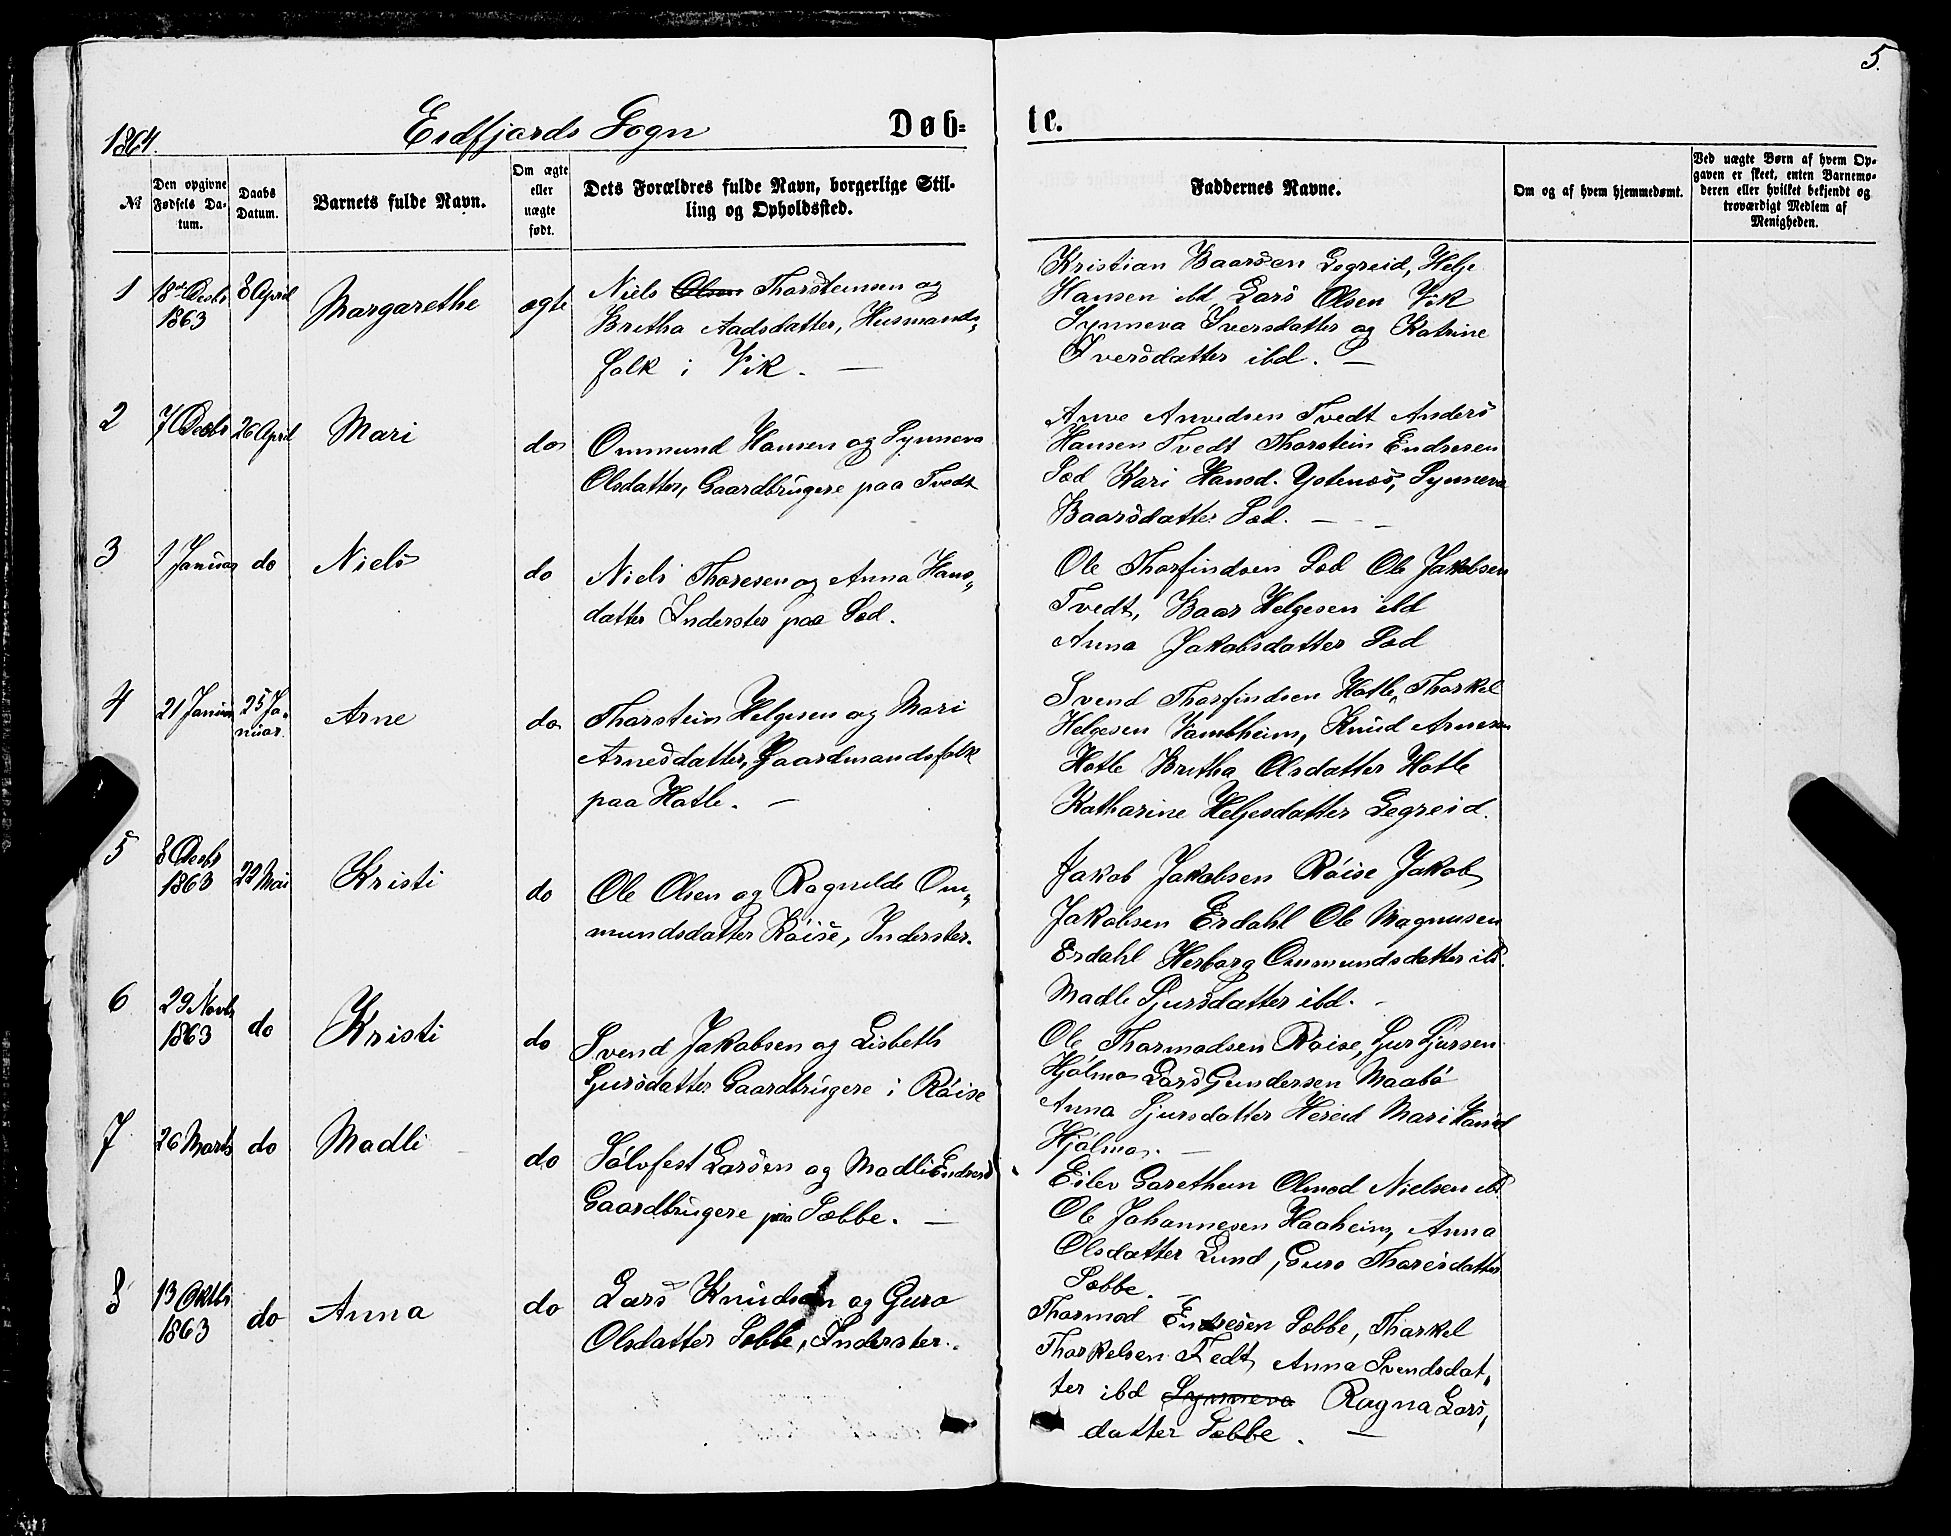 5.
1864.
Eidfjords Sogn
Døb=
te.
№
Den opgivne Fødsels Da-tum.
Daabs Datum.
Barnets fulde Navn.
Om ægte eller uægte født.
Dets Forældres fulde Navn, borgerlige Stil-
ling og Opholdssted.
Faddernes Navne.
Om og af hvem hjemmedøbt.
Ved uægte Børn af hvem Op-
gaven er skeet, enten Barnemo-
deren eller hvilket bekjendt og
troværdigt Medlem af
Menigheden.
1
18de Decbr 1863
3 April
Margarethe
ægte
Niels Olsen Thorsteinsen og
Bretha Aadsdatter, Husmands-
folk i Vik. —
Kristian Baarsen Legreid, Helje
Hansen ibd, Lars Olsen Vik
Synneva Iversdatter og Katrine
Iversdatter ibd. —
2
7 Decbr
26 April
Mari
do
Ommund Hansen og Synneva
Olsdatter, Gaardbrugere paa Tvedt
Anve Anvedsen Tvedt Anders
Hansen Tvedt Thorstein Endresen
Sæd Kari Hansd. Ystenæs, Synneva
Baarsdatter Sæd. — - —
3
1 Januar
do
Niels
do
Niels Thoresen og Anna Hans-
datter Inderster paa Sæd.
Ole Thorfindsen Sæd Ole Jakobsen
Tvedt, Baar Helgesen ibd
Anna Jakobsdatter Sæd
4
21 Januar
25 Ja-
nuar.
Arne
do
Thorstein Helgesen og Mari
Arnesdatter, Gaardmandsfolk
paa Hotle. —
Svend Thorfindsen Hotle, Thorkel
Helgesen Vambheim, Knud Arnesen
Hotle Britha Olsdatter Hotle
Katharine Heljesdatter Legreid.
5
8 Decbr
1863
22 Mai
Kristi
do
Ole Olsen og Ragnilde Om-
mundsdatter Röise, Inderster.
Jakob Jakobsen Röise Jakob
Jakobsen Erdahl Ole Magnusen
Erdahl Herborg Ommundsdatter ibd.
Madle Sjursdatter ibd. -
6
29 Novbr
1863
do
Kristi
do
Svend Jakobsen og Lisbeth
Sjursdatter Gaardbrugere i Röise
Ole Thormodsen Röise, Sjur Sjursen
Hjölmo Lars Gundersen Maabö
Anna Sjursdatter Hereid Mari Hansd
Hjölmo. —
7
26 Marts
do
Madli
do
Sölvfest Larsen og Madli Endresd
Gaardbrugere paa Sæbbe. —
Eilev Garethun Olmod Nielsen ibd
Ole Johannesen Haaheim, Anna
Olsdatter Lund, Guro Thoresdatter
Sæbbe. —
8
13 Oktbr
1863
do
Anna
do
Lars Knudsen og Guro
Olsdatter Sæbbe, Inderster.
Thormod Endresen Sæbbe, Thorkel
Thorkelsen Tvedt, Anna Svendsdat-
ter ibd Synneva Ragna Lars-
datter Sæbbe. —